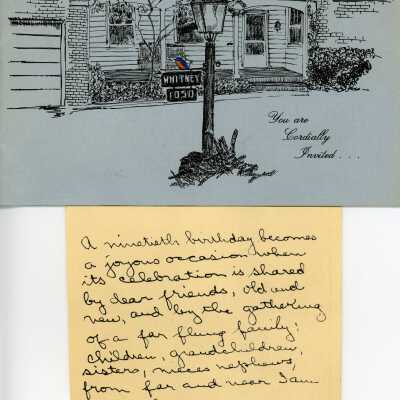 WHITNEY
1050
You are
Cordially
Invited...
A ninetieth birthday becomes
a joyous occasion when
its celebration is shared
by dear friends, old and
new, and by the gathering
of a far flung family;
children, grandchildren,
sisters, nieces, nephews,
from far and near I am